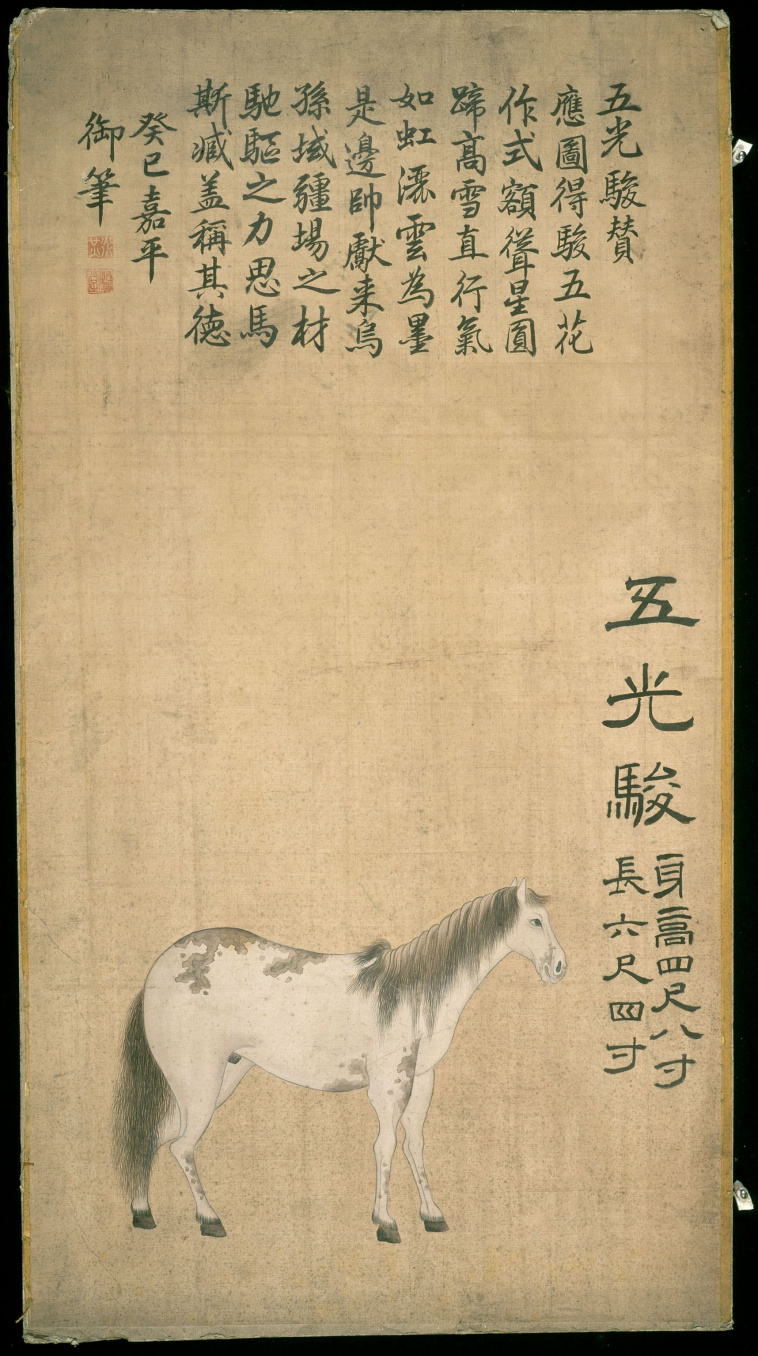 五光駿賛
應圖得駿五花
作式額聳星圓
蹄高雪直行氣
如虹灑雲為墨
是邊帥獻来烏
孫域疆場之材
馳驅之力思馬
斯臧盖稱其徳
癸巳嘉平
御筆
五光駿
身高四尺八寸
長六尺四寸